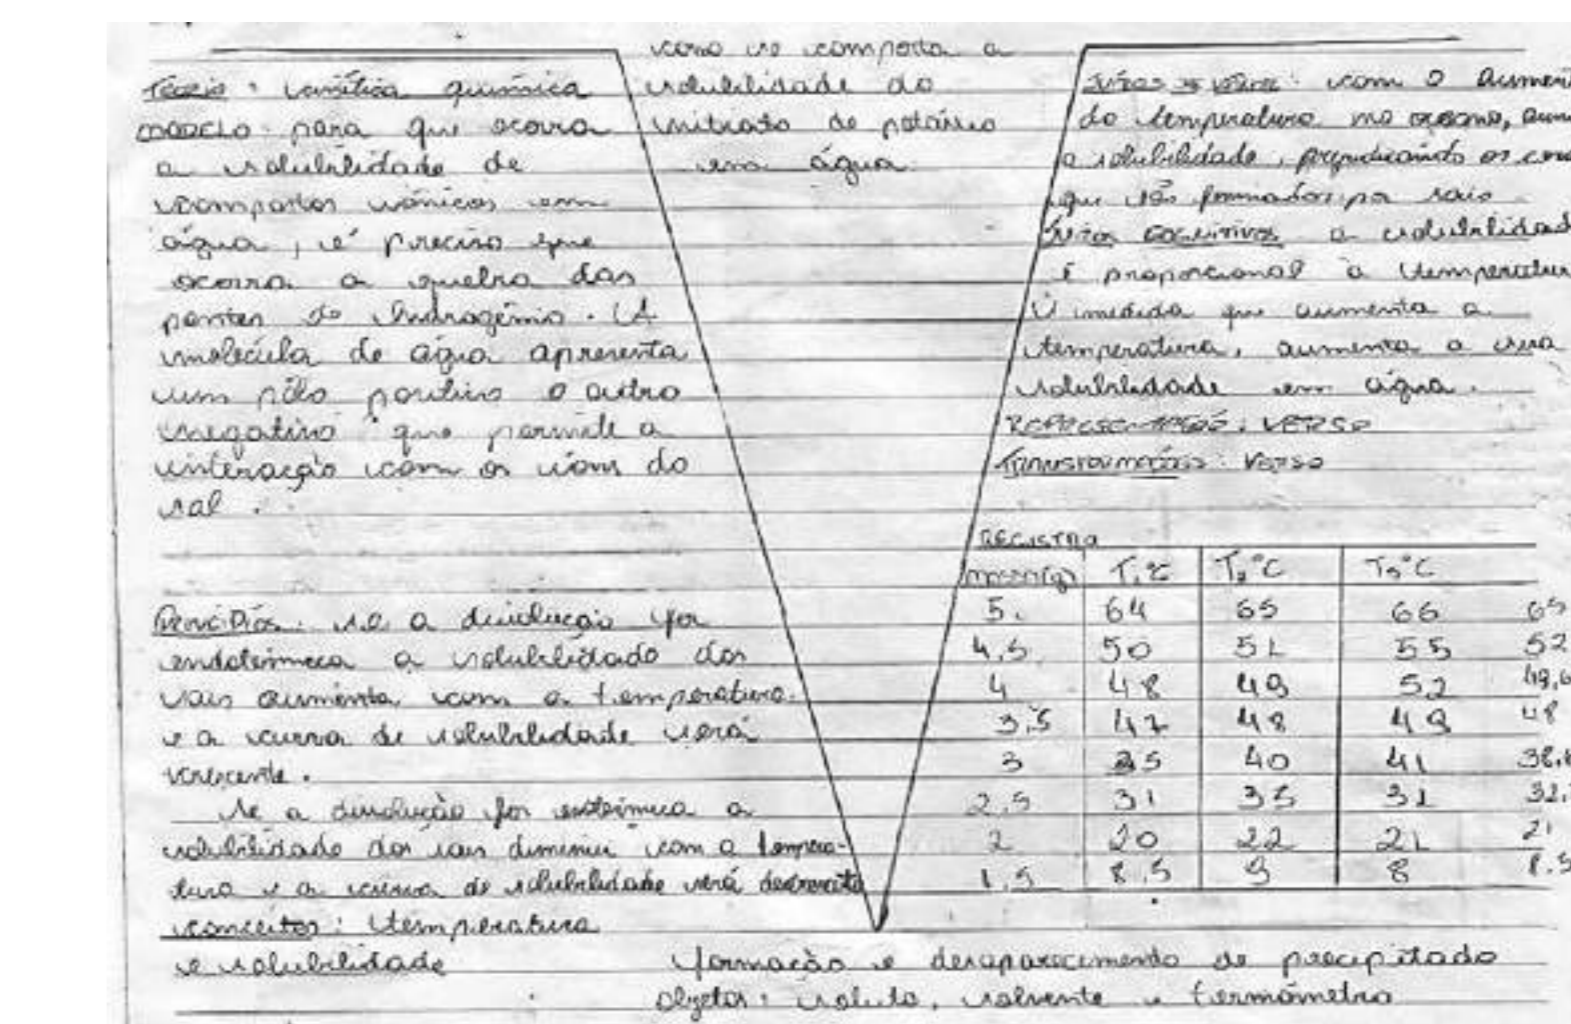 como se comporta a
solubilidade do
nitrato de potássio
em água
Teoria: cinética química
MODELO: para que ocorra
a solubilidade de
compostos iônicos em
água, é preciso que
ocorra a quebra das
pontes de hidrogênio. A
molécula de água apresenta
um pólo positivo e outro
negativo que permite a
interação com os íons do
sal.
Princípios: se a dissolução for
endotérmica a solubilidade dos
sais aumenta com a temperatura
e a curva de solubilidade será
crescente.
Se a dissolução for exotérmica a
solubilidade dos sais diminui com a tempera-
tura e a curva de solubilidade será
conceitos: temperatura
e solubilidade
Juízos de valor: com o
do temperatura no oceano,
a solubilidade, prejudicando os
que são formados por sais
Juízos cognitivos a
é proporcional a
a medida que aumenta a
temperatura, aumenta a sua
solubilidade em água.
REPRESENTAÇÃO: VERSO
TRANSFORMAÇÕES: VERSO
REGISTRO
massa(g) T1°C T2°C T3°C
5. 64 65 66 65
4,5 50 51 55 52
4 48 49 52 49,6
3,5 47 48 49 48
3 35 40 41
2.5 31 35 31
2 20 22 21 21
1.5 8.5 9 8 8.5
formação e desaparecimento de precipitado
objetos: soluto, solvente e termômetro